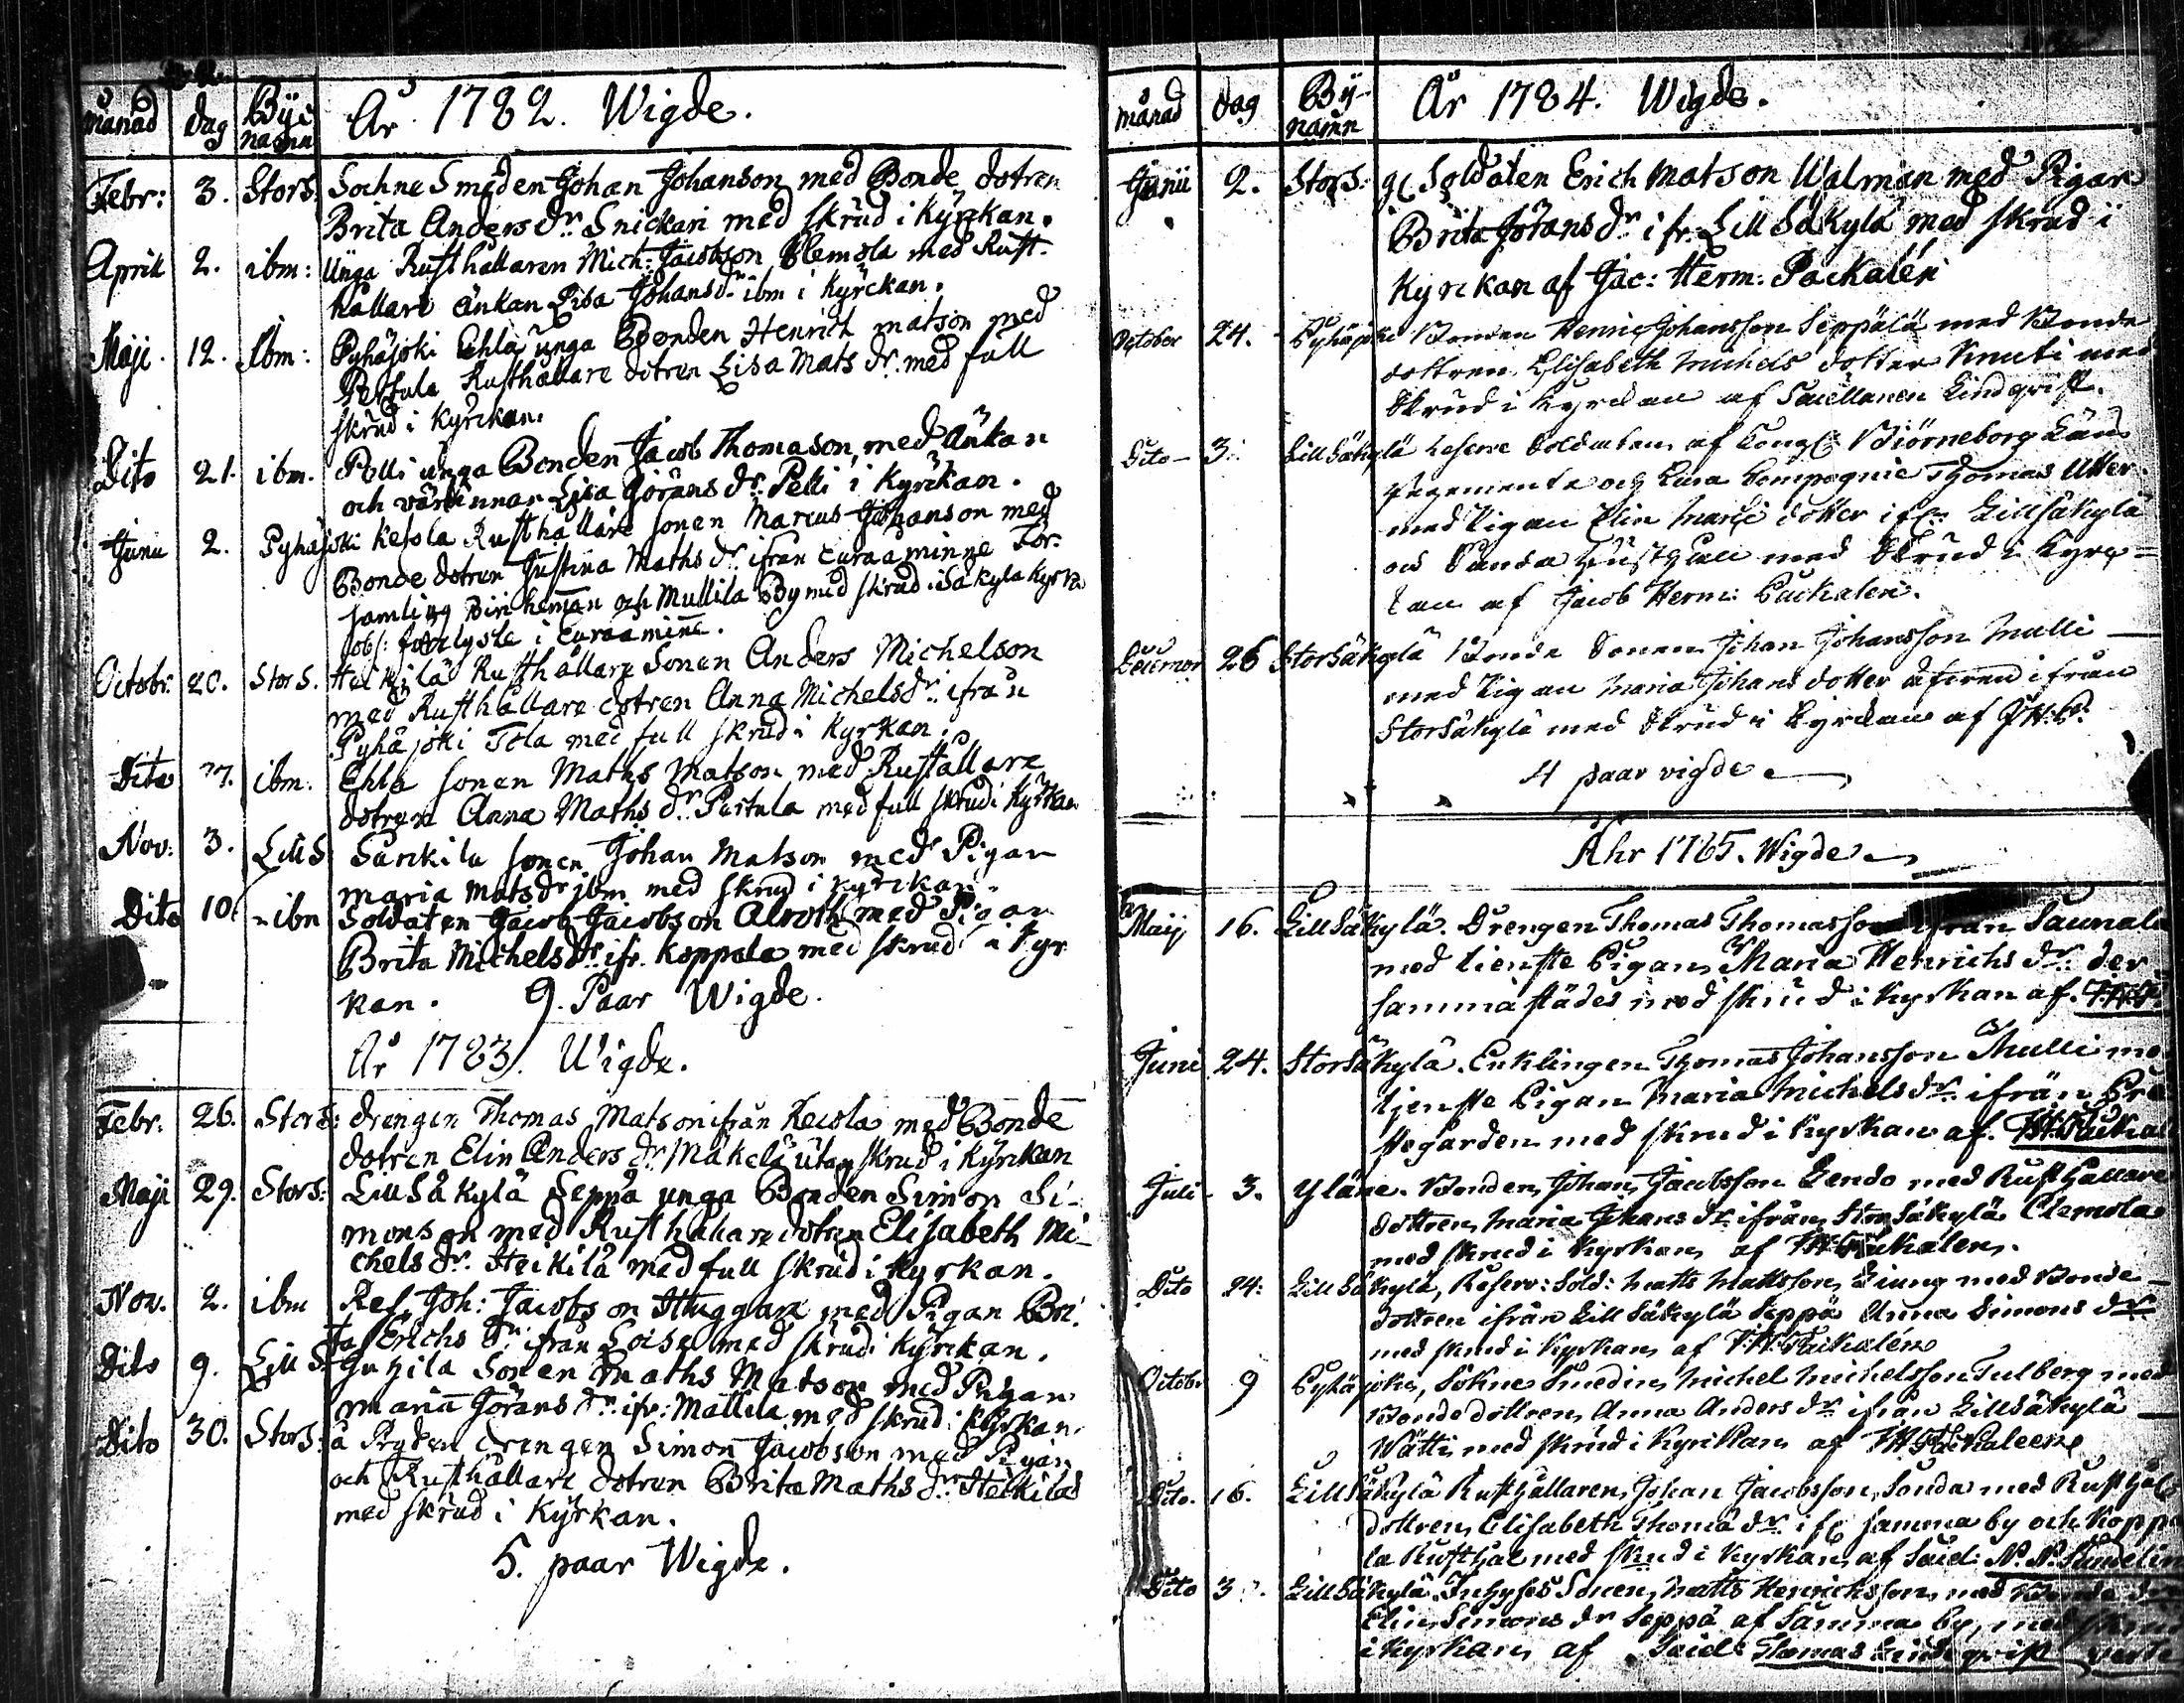 månad dag Być namn År 1782. Wigde.
Febr: 3. Stors. Sochne Smeden Johan Johanson med Bonde dotren
Brita Anders dr. Snickari med skrud i Kyrkan.
Aprill 2. ibm: Unga Rusthållaren Mich: Jacobson Clemola med Rust-
hållare änkan Lisa Johans dr ibm i Kyrckan.
Maji. 12. ibm: Pyhäjoki Ehla unga Bonden Henrich matson med
Pertula Rusthållare dotren Lisa Mats dr. med full
skrud i Kyrckan.
Dito 21. ibm. Pelli unga Bonden Jacob Thomason med änkan
och värdinnan Lisa Görans dr. Pelli i Kyrckan.
Junii 2. Pyhäjoki Kesola Rusthållare sonen Marcus Johanson med
Bonde dotren Justina Maths dr. ifrån Euraaminne För-
samling heman och Mullila By med skrud i Säkyla Kyrka
obs: lyste i Euraaminne.
Octobr: 20. Stor S. Heikilä Rusthållare Sonen Anders Michelson
med Rusthållare dotren Anna Michels dr. ifrån
Pyhäjoki Tola med full skrud i Kyrkan.
Dito 27. ibm. Ehla sonen Maths Matson med Rusthållare
dotren Anna Maths dr. Pertula med full skrud i Kyrkan
Nov: 3. Lill S Särkila sonen Johan Matson med Pigan
maria Mats dr ibm med skrud i Kyrckan.
Dito 10. ibm Soldaten Jacob Jacobson Alroth med Pigan
Brita Michels dr. ifr. Koppala med skrud i Kyr
kan. 9. Paar Wigde.
År 1783. Wigde.
Febr. 26. Stor S: drengen Thomas Matson ifrån Kecola med Bonde
dotren Elin Anders dr. Mäkelä utan skrud i Kyrckan
Maji 29. Stor S: Lill Säkylä Seppä unga Bonden Simon Si-
monson med Rusthållare dotren Elisabeth Mi-
chels dr. Heikilä med full skrud i Kyrkan.
Nov. 2. ibm Res. Joh: Jacobson Huggare med Pigan Bri-
ta Erichs dr. ifrån Loise med skrud i Kyrckan.
Dito 9. Lill S. Sonen Maths Matson med Pigan
maria Görans dr. ifr: Mallila med skrud i Kyrkan.
Dito 30. Stor S: drengen Simon Jacobson med Pigan
och Rusthållare dotren Brita Maths dr. Heikilä
med skrud i Kyrkan.
5. paar Wigde.
månad dag By- namn År 1784. Wigde.
Junii 2. Stor S: Soldaten Erich Matson Walman med Pigan
Brita Görans dr. ifr. Lill Säkylä med skrud i
Kyrckan af Jac: Herm: Packalén
October 24. Pyhäjoki Bonden Henric Johansson Seppälä med Bonde
dottren Elisabeth Michels dotter Knuti med
Skrud i Kyrckan af Lindqvist.
Dito - 3 Lill Säkylä Reserve Soldaten af Kongl: Björneborg Läns
Regemente och Eura Compagnie Thomas Utter
med Pigan Elin dotter ifr. Lill Säkylä
och Sunda Rusthåll med Skrud i Kyrc-
kan af Jacob Herm: Packalén.
26 Stor Säkylä Bonde Sonen Johan Johansson Mulli
med Pigan Maria Johans dotter ifrån
Stor Säkylä med Skrud i Kyrckan af J.H.P.
4 paar vigde
Åhr 1785. Wigde
Maij 16. Lill Säkylä. Drengen Thomas Thomasson ifrån Saunala
med tienste Pigan Maria Henrichs dr. der
samma städes med skrud i Kyrkan af
Juni 24. Stor Säkylä. Enklingen Thomas Johansson Mulli me
tjenste Pigan Maria Michels dr. ifrån Pre
stegården med skrud i Kyrkan af
Juli - 3. Yläne. Bonden Johan Jacobsson Lendo med Rusthållare
dottren Maria Johans dr. ifrån Stor Säkylä Clemola
med skrud i Kyrkan af Packalén.
Dito 24: Lill Säkylä, Reserv: Sold: Matts Mattsson Liung med Bonde
dottren ifrån Lill Säkylä Seppä Anna Simons dr
med skrud i Kyrkan af Packalén
Octobr 9 Pyhäjoki, Sokne Smeden Michel Michelsson Tulberg med
Bonde dottren Anna Anders dr ifrån Lill Säkylä
Wätti med skrud i Kyrkan af
Dito. 16. Lill Säkylä Rusthållaren Johan Jacobsson Sonda med Rusthål
dottren Elisabeth Thoma dr. samma by och Koppa
la Rusthål med skrud i Kyrkan af
Dito 3 Lill Säkylä Sonen Matts Henricksson med Bonde
Elin Simons dr Seppä af Samma by, med skrud
i Kyrkan af Thomas Lindqvist verte